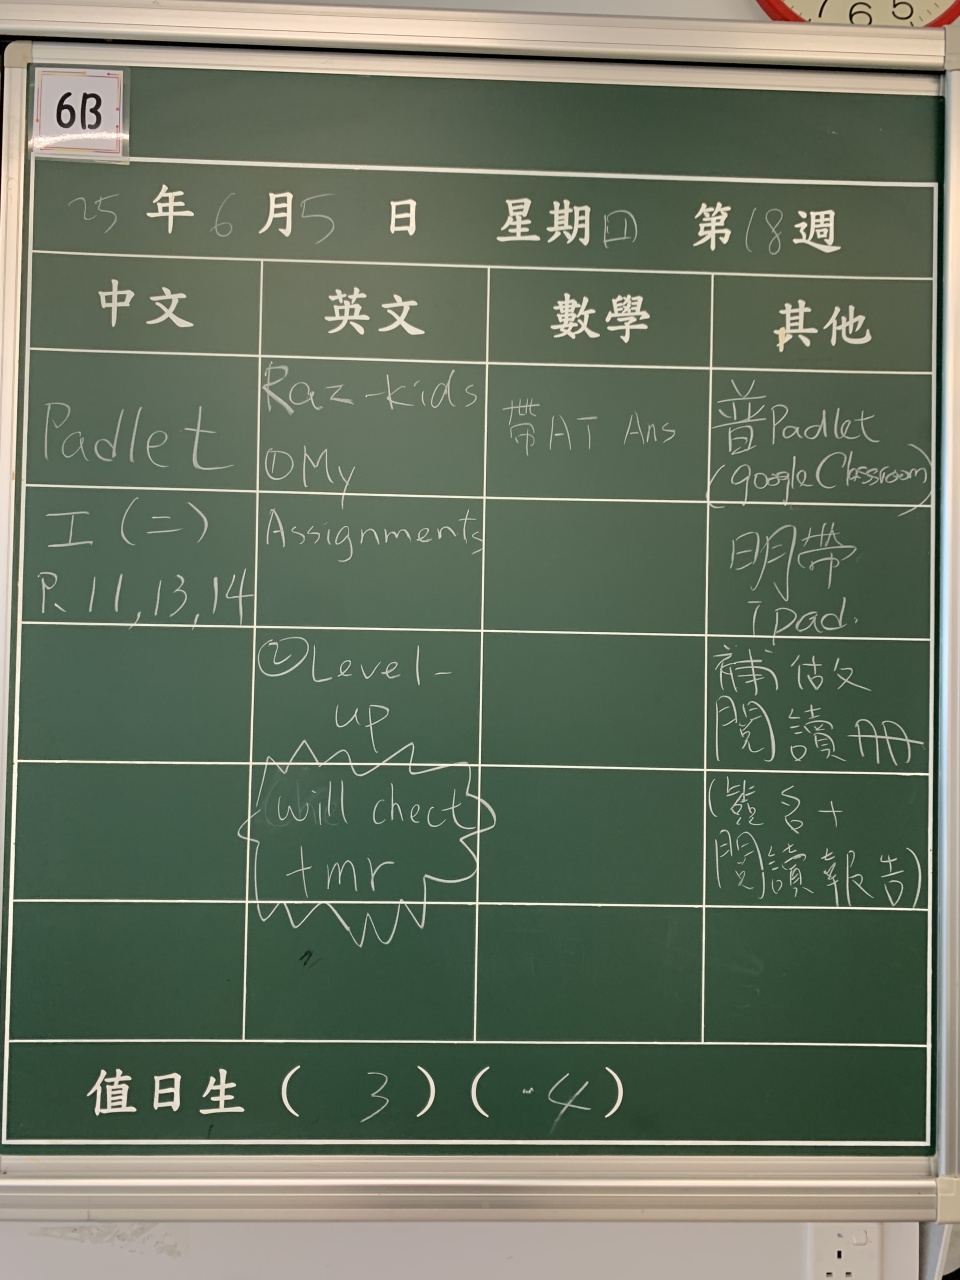 7 6 5
6B
25年6月5日 星期四 第18週
中文 英文 數學 其他
Padlet
工(二)
P. 11, 13, 14
Raz-kids
①My
Assignments
②Level-
up
will chect
tmr
帶AT Ans
普Padlet
(google Classroom)
明帶
ipad.
補估文
閱讀冊
(簽名+
閱讀報告)
值日生(3)(4)